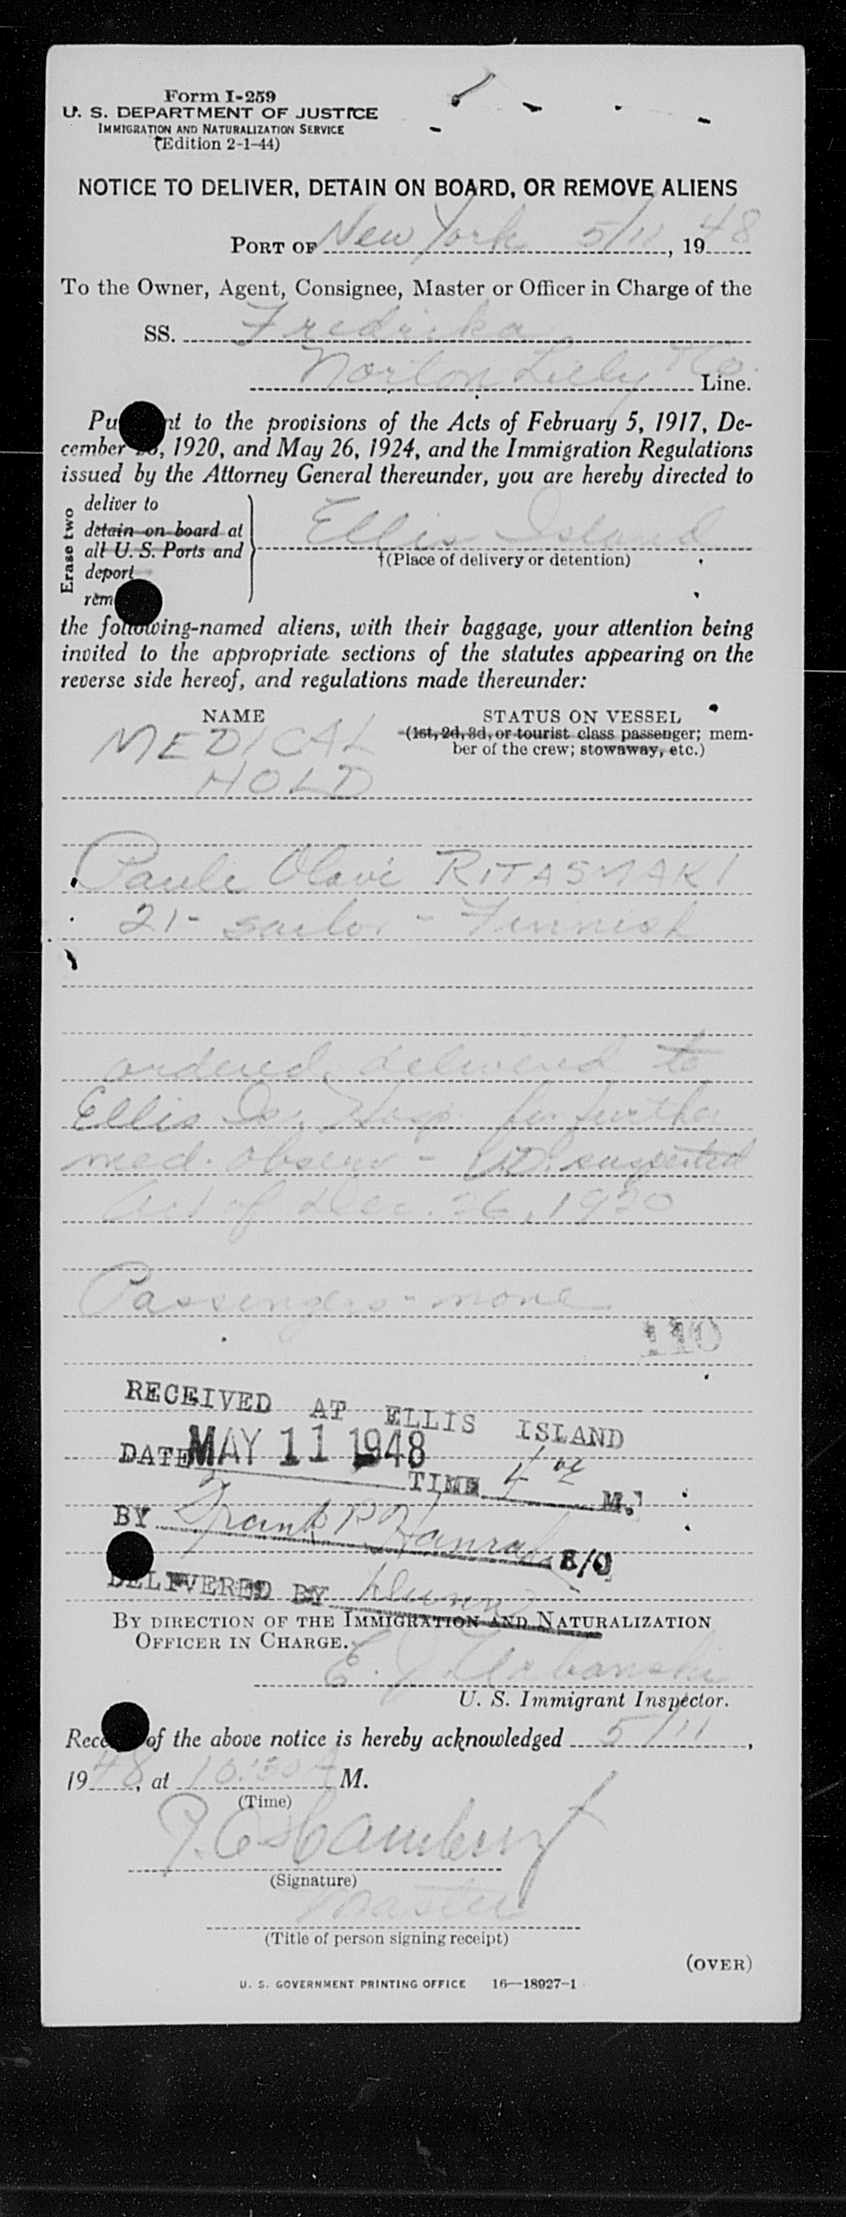 Form I-259
U. S. DEPARTMENT OF JUSTICE
IMMIGRATION AND NATURALIZATION SERVICE
(Edition 2-1-44)
NOTICE TO DELIVER, DETAIN ON BOARD, OR REMOVE ALIENS
PORT OF New York 5/11, 1948
To the Owner, Agent, Consignee, Master or Officer in Charge of the
SS. Fredrika
Norton Lilly Co. Line.
Pu nt to the provisions of the Acts of February 5, 1917, De-
cember 26, 1920, and May 26, 1924, and the Immigration Regulations
issued by the Attorney General thereunder, you are hereby directed to
Erase two
deliver to
detain on board at
all U. S. Ports and
deport
rem
Ellis Island
†(Place of delivery or detention)
the following-named aliens, with their baggage, your attention being
invited to the appropriate sections of the statutes appearing on the
reverse side hereof, and regulations made thereunder:
NAME STATUS ON VESSEL
(1st, 2d, 3d, or tourist class passenger; mem-
ber of the crew; stowaway, etc.)
MEDICAL
HOLD
Pauli Olavi RITASMAKI
21 - sailor - Finnish
ordered delivered to
Ellis Is. Hosp. for further
med. observ - VD. suspected
Act of Dec. 26, 1920
Passengers - none
110
RECEIVED AT ELLIS ISLAND
DATE MAY 11 1948
TIME 4 M.
BY Frank P Hanrah B/O
DELIVERED BY Dunn
BY DIRECTION OF THE IMMIGRATION AND NATURALIZATION
OFFICER IN CHARGE.
E. J. Urbanski
U. S. Immigrant Inspector.
Rece of the above notice is hereby acknowledged 5/11,
1948, at 10:30 A M.
(Time)
(Signature)
Master
(Title of person signing receipt)
(OVER)
U. S. GOVERNMENT PRINTING OFFICE 16—18927-1